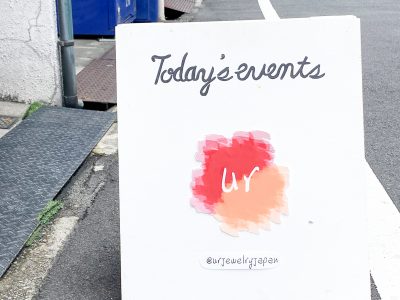 Today's events
ur
@urjewelryjapan